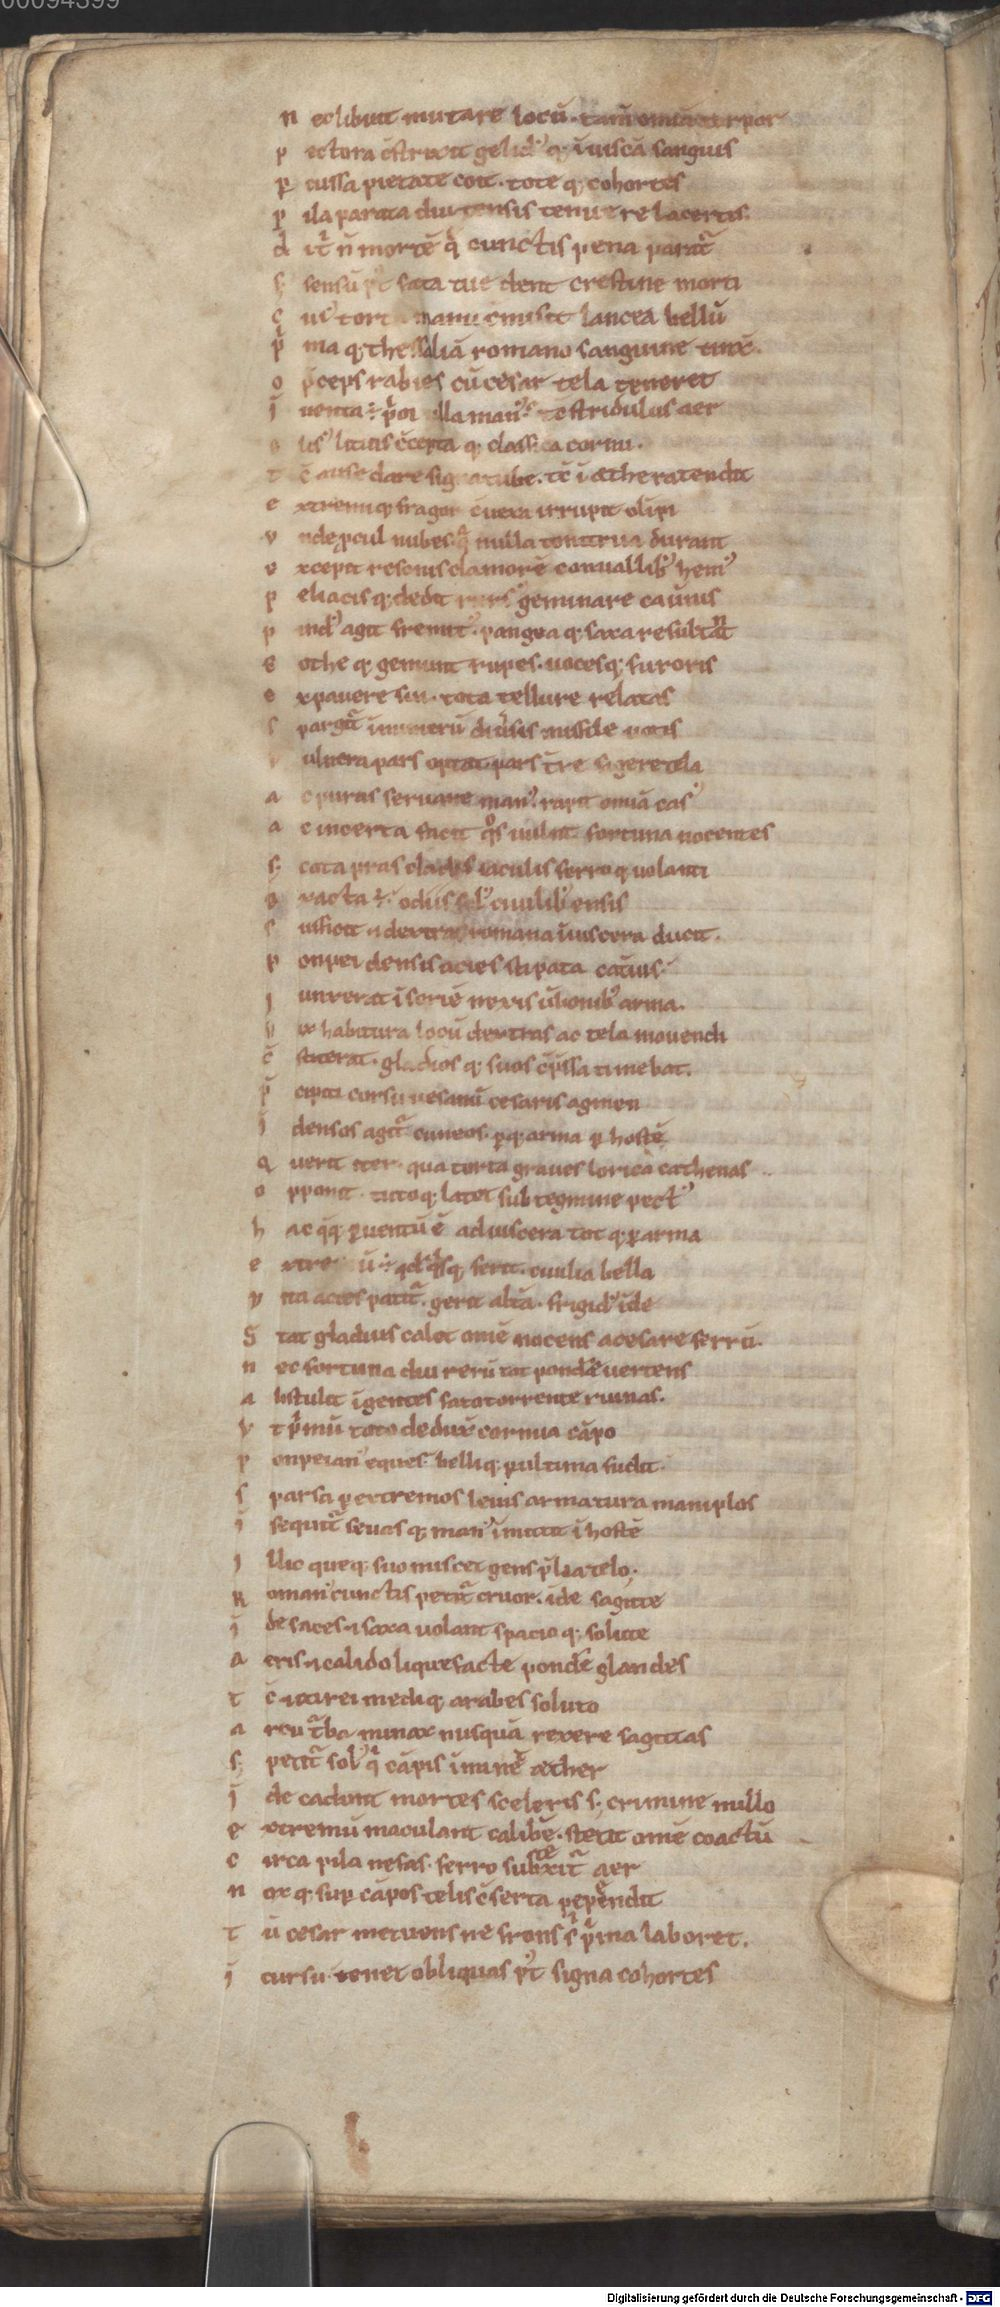 00094399
n ec libuit mutare locū. tam̄ om̄ia torpor
p ectora c̄strinxit gelid᷒ q; ī uiscā sanguis
ꝑ cussa pietate coit. tote q; cohortes
p ila parata diu tensis tenuere lacertis.
d ii t̄ ñ mortē q̄ cunctis pena parat᷑
s; sensū pt̄ fata tue dent crastine morti
c ui᷒ torta manu cmisit lancea bellū
p̄ ma q; thessaliā romano sanguine tinx̄.
o p̄ceps rabies cū cesar tela teneret
ī uenta ÷ p̄or ulla man᷒. tc̄ stridulus aer
e lis᷒ lituis c̄cepta q; classica cornu.
t c̄ ause dare signa tube. tc̄ ī æthera tendit
e xtremiq; fragor c̄uexa irrupit olīpi
v nde ꝓcul nubes. q̄ nulla tonitrua durant
e xcepit resonis clamorē conuallib᷒ hem᷒
p eliacis q; dedit rurs᷒ geminare cauīus
p ind᷒ agit fremit᷒. pangea q; saxa resultant
e othe q; gemunt rupes. uocesq; furoris
e xpauere sui. tota tellure relatas
s pargit᷑ īnumerū diūsis missile uotis
v ulnera pars optat. pars t̄re figere tela
a c puras seruare man᷒. rapit om̄ia cas᷒
a c incerta facit q̊s uult fortuna nocentes
s; cota pras cladis iaculis ferro q; uolanti
e xacta ÷. odiis sol᷒ ciuilib᷒ ensis
s ufficit ⁊ dextras romana ī uiscera ducit.
p onpei densis acies stipata cauīs᷒
j unxerat ī seriē nexis ūbonib᷒ arma.
v ix habitura locū dextras ac tela mouendi
c̄ stiterat. gladios q; suos c̄p̄ssa timebat.
p̄ cipiti cursu uesanū cesaris agmen
ī densos agit᷑ cuneos. ꝑq; arma ꝑ hostē
q uerit iter. qua torta graues lorica cathenas
o pponit. tutoq; latet sub tegmine pect᷒
h ac q̄q; ꝑuentū ē ad uiscera tot q; ꝑ arma
e xtre ū ÷ qd̄ q̄sq; ferit. ciuilia bella
v na acies patit᷑. gerit alt̄a. frigid᷒ īde
S tat gladius calet om̄e nocens a cesare ferrū.
n ec fortuna diu rerū tot pondera uertens
a bstulit īgentes fato torrente ruinas.
v t p̄mū toto dedux̄ cornua cāpo
p onpeian᷒ eques belliq; ꝑ ultima fudit
s parsa ꝑ extremos leuis armatura maniplos
ī sequit᷑ seuas q; man᷒ īmittit ī hostē
j llic queq; suo miscet gens p̄lia telo.
R oman᷒ cunctis petit᷑ cruor. īde sagitte
ī de faces ⁊ saxa uolant spacio q; solute
a eris ⁊ calido liquefacte pondere glandes
t c̄ ⁊ itirei mediq; arabes soluto
a rcu t᷑ba minax nusquā rexere sagittas
s; petit᷑ sol᷒ q̄ cāpis īminet æther
j de cadunt mortes sceleris s; crimine nullo
e xtremū maculant calibē. stetit om̄e coactū
c irca pila nefas. ferro subtexit᷑ aer
n ox q; sup cāpos telis c̄serta pependit
t ū cesar metuens ne frons s̄ p̄ma laboret.
ī cursu. tenet obliquas p᷒t signa cohortes
Digitalisierung gefördert durch die Deutsche Forschungsgemeinschaft - DFG